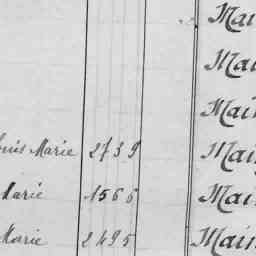 Mai
Mai
Mai
ouis Marie 2739 Mai
Marie 1566 Mai
Marie 2495 Main